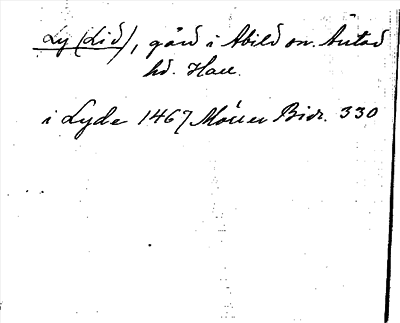 Ly (Lið), gård i Abild sn. Årstad
hd. Hall.
i Lyde 1467 Möller Bidr. 330